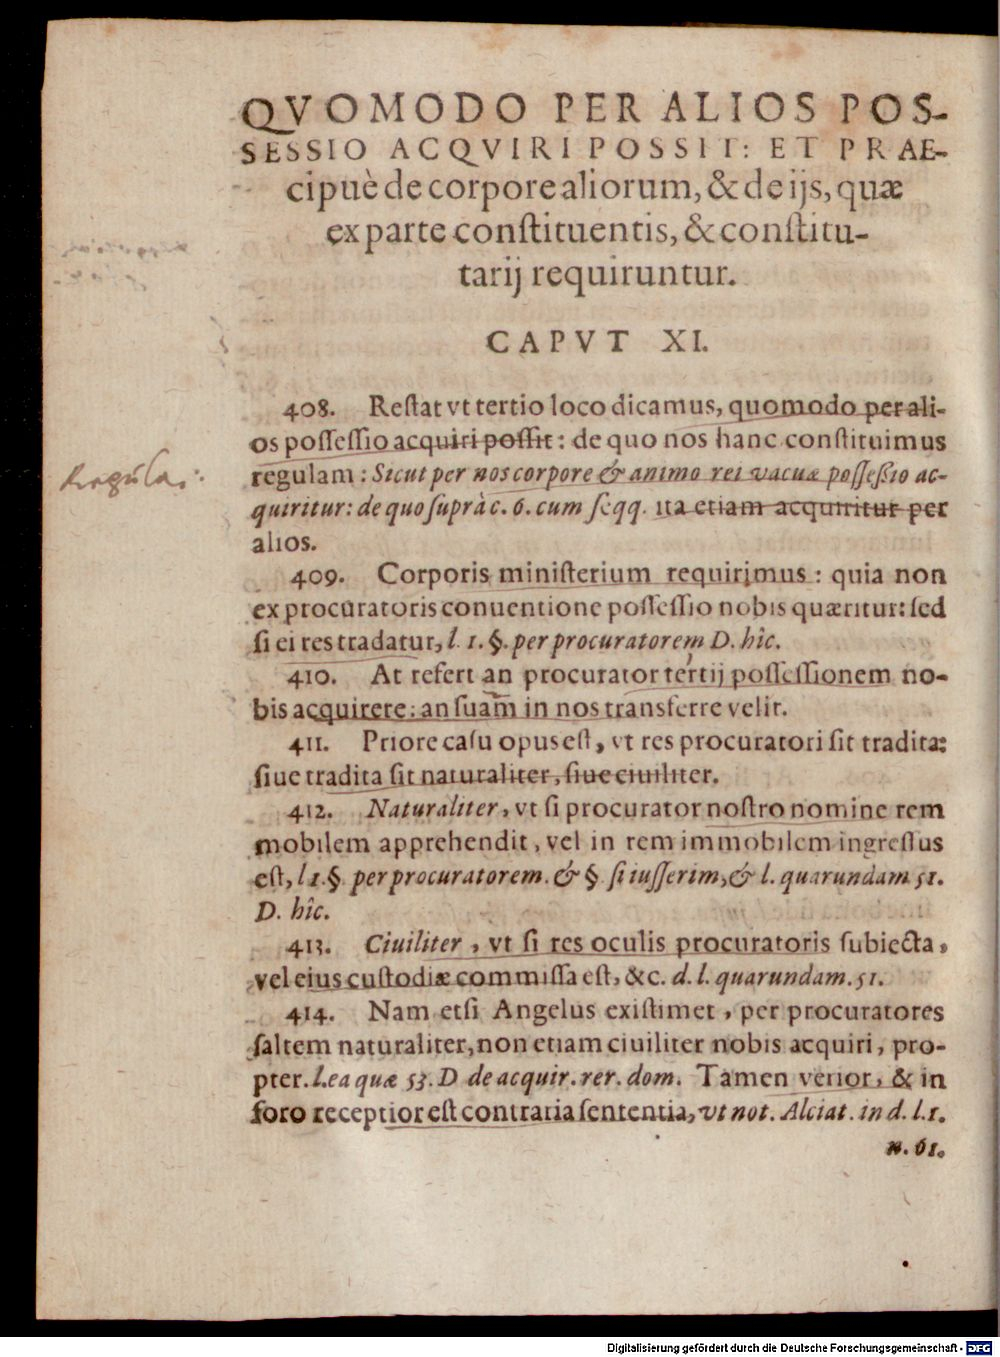 QVOMODO PER ALIOS POS-
SESSIO ACQVIRI POSSIT: ET PRAE-
cipuè de corpore aliorum, & de ijs, quæ
ex parte conſtituentis, & conſtitu-
tarij requiruntur.
CAPVT XI.
408. Reſtat vt tertio loco dicamus, quomodo per ali-
os poſſeſſio acquiri poſſit: de quo nos hanc conſtituimus
Regula.:
regulam: Sicut per nos corpore & animo rei vacuæ poſſeſsio ac-
quiritur: de quo ſuprà c. 6. cum ſeqq. ita etiam acquiritur per
alios.
409. Corporis miniſterium requirimus: quia non
ex procuratoris conuentione poſſeſſio nobis quæritur: ſed
ſi ei res tradatur, l. 1. §. per procuratorem D. hîc.
410. At refert an procurator tertij poſſeſſionem no-
bis acquirere: an ſuam in nos transferre velit.
411. Priore caſu opus eſt, vt res procuratori ſit tradita:
ſiue tradita ſit naturaliter, ſiue ciuiliter.
412. Naturaliter, vt ſi procurator noſtro nomine rem
mobilem apprehendit, vel in rem immobilem ingreſſus
eſt, l 1. §. per procuratorem. & §. ſi iuſſerim, & l. quarundam 51.
D. hîc.
413. Ciuiliter, vt ſi res oculis procuratoris ſubiecta,
vel eius cuſtodiæ commiſſa eſt, &c. d. l. quarundam. 51.
414. Nam etſi Angelus exiſtimet, per procuratores
ſaltem naturaliter, non etiam ciuiliter nobis acquiri, pro-
pter. l. ea quæ 53. D de acquir. rer. dom. Tamen verior, & in
foro receptior eſt contraria ſententia, vt not. Alciat. in d. l. 1.
n. 61.
Digitalisierung gefördert durch die Deutsche Forschungsgemeinschaft - DFG